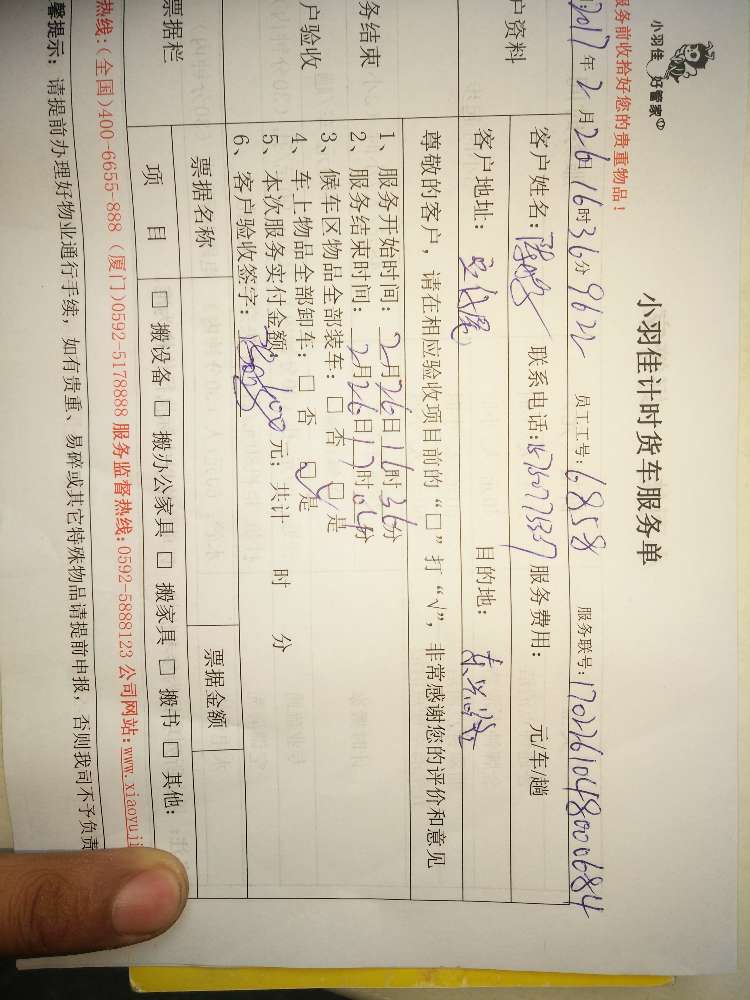 小羽佳 好管家
服务前收拾好您的贵重物品！
小羽佳计时货车服务单
2017年2月26日16时36分 9622 员工工号：6858 服务联号：170226104800684
户资料 客户姓名： 联系电话： 服务费用： 元/车/趟
客户地址： 目的地：
尊敬的客户，请在相应验收项目前的“□”打“√”，非常感谢您的评价和意见
务结束
户验收
1、服务开始时间：2月26日16时36分
2、服务结束时间：2月26日17时04分
3、候车区物品全部装车：□ 否 □ 是
4、车上物品全部卸车：□ 否 □ 是
5、本次服务实付金额：600元；共计 时 分
6、客户验收签字：
票据栏 票据名称 票据金额
项 目 □ 搬设备 □ 搬办公家具 □ 搬家具 □ 搬书 □ 其他：
热线：(全国)400-6655-888 (厦门)0592-5178888 服务监督热线：0592-5888123 公司网站：www.xiaoyuji
馨提示：请提前办理好物业通行手续，如有贵重、易碎或其它特殊物品请提前申报，否则我司不予负责